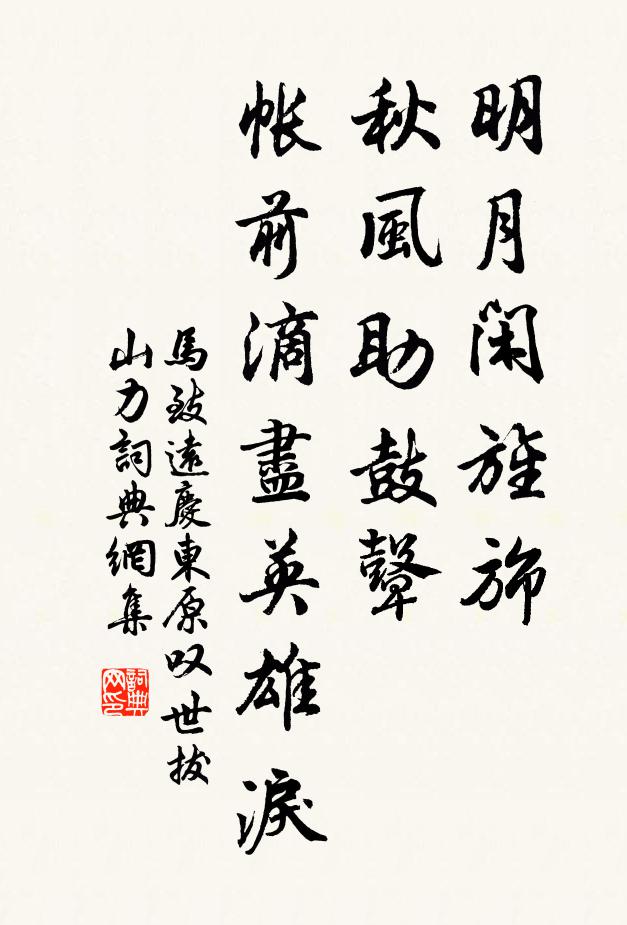 明月閑旌旆
秋風助鼓鼙
帳前滴盡英雄淚
馬致遠慶東原叹世拔
山力詞典網集
詞典
网印